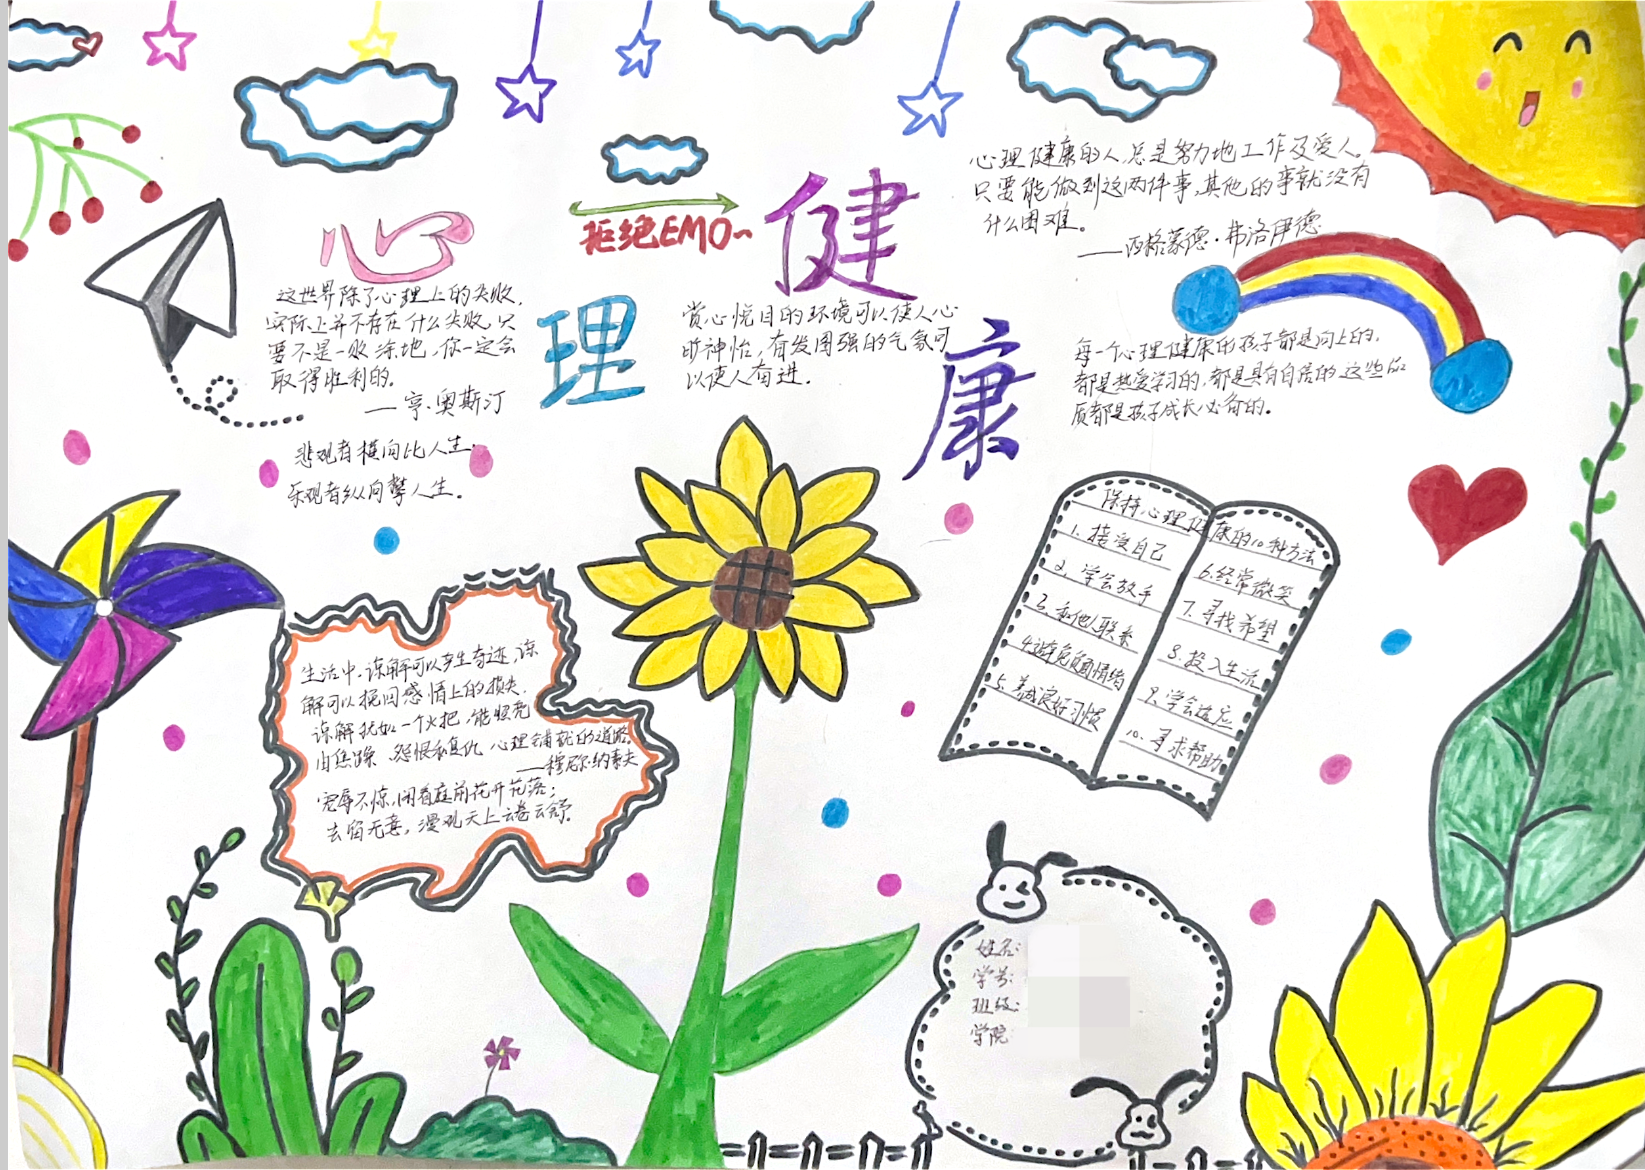 心理健康
拒绝EMO~
这世界除了心理上的失败，
实际上并不存在什么失败，只
要不是一败涂地，你一定会
取得胜利的。
——亨·奥斯汀
悲观者横向比人生，
乐观者纵向攀人生。
赏心悦目的环境可以使人心
旷神怡，奋发图强的气氛可
以使人奋进。
心理健康的人，总是努力地工作及爱人。
只要能做到这两件事，其他的事就没有
什么困难。
——西格蒙德·弗洛伊德
每一个心理健康的孩子都是向上的，
都是热爱学习的，都是具有自居的，这些品
质都是孩子成长必备的。
生活中，谅解可以产生奇迹，谅
解可以挽回感情上的损失，
谅解犹如一个火把，能照亮
由焦躁、怨恨和复仇心理铺就的道路。
——穆尼尔·纳素夫
宠辱不惊，闲看庭前花开花落；
去留无意，漫观天上云卷云舒。
保持心理健康的10种方法
1. 接受自己
2. 学会放手
3. 和他人联系
4. 避免负面情绪
5. 养成良好习惯
6. 经常微笑
7. 寻找希望
8. 投入生活
9. 学会适应
10. 寻求帮助
姓名：
学号：
班级：
学院：